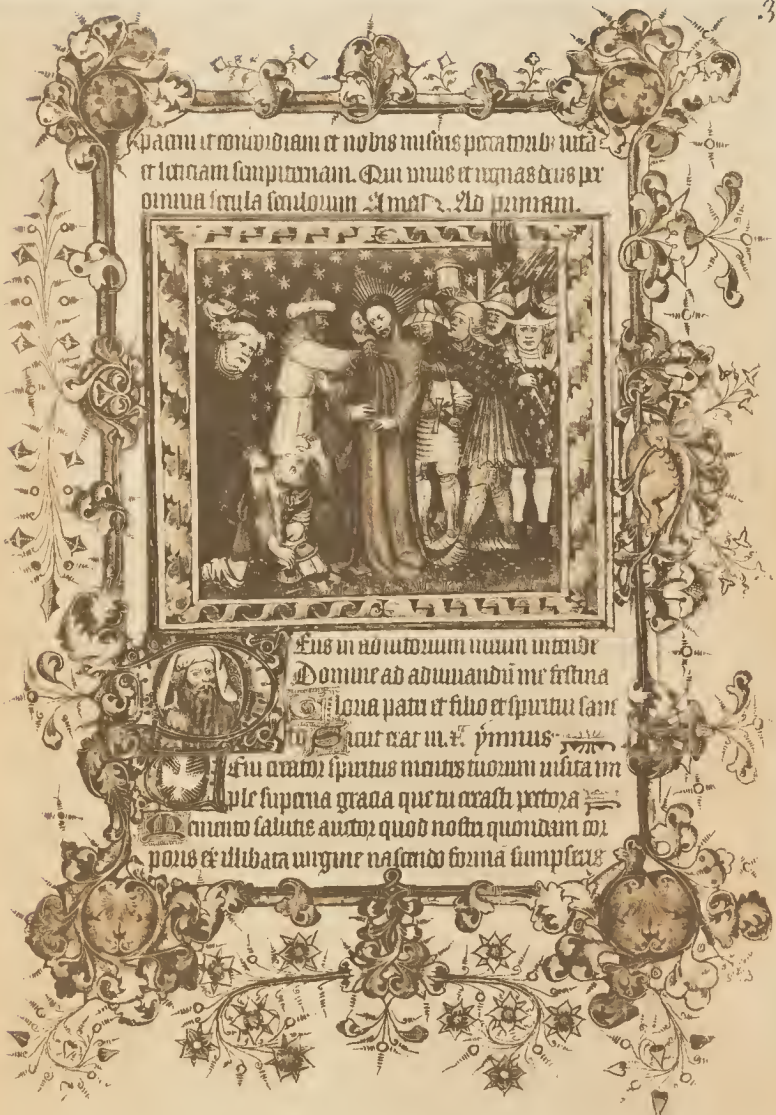 3
pacem et concordiam et nobis miseris peccatorib; vita
et leticiam sempiternam. Qui vivis et regnas deus per
omnia secula seculorum Amen. Ad primam.
Deus in adiutorium meum intende
Domine ad adiuvandū me festina
Gloria patri et filio et spiritui sanc
to Sicut erat in. ymnus
Veni creator spiritus mentes tuorum visita im
ple superna gracia que tu creasti pectora
Memento salutis auctor quod nostri quondam cor
poris ex illibata virgine nascendo formā sumpseris